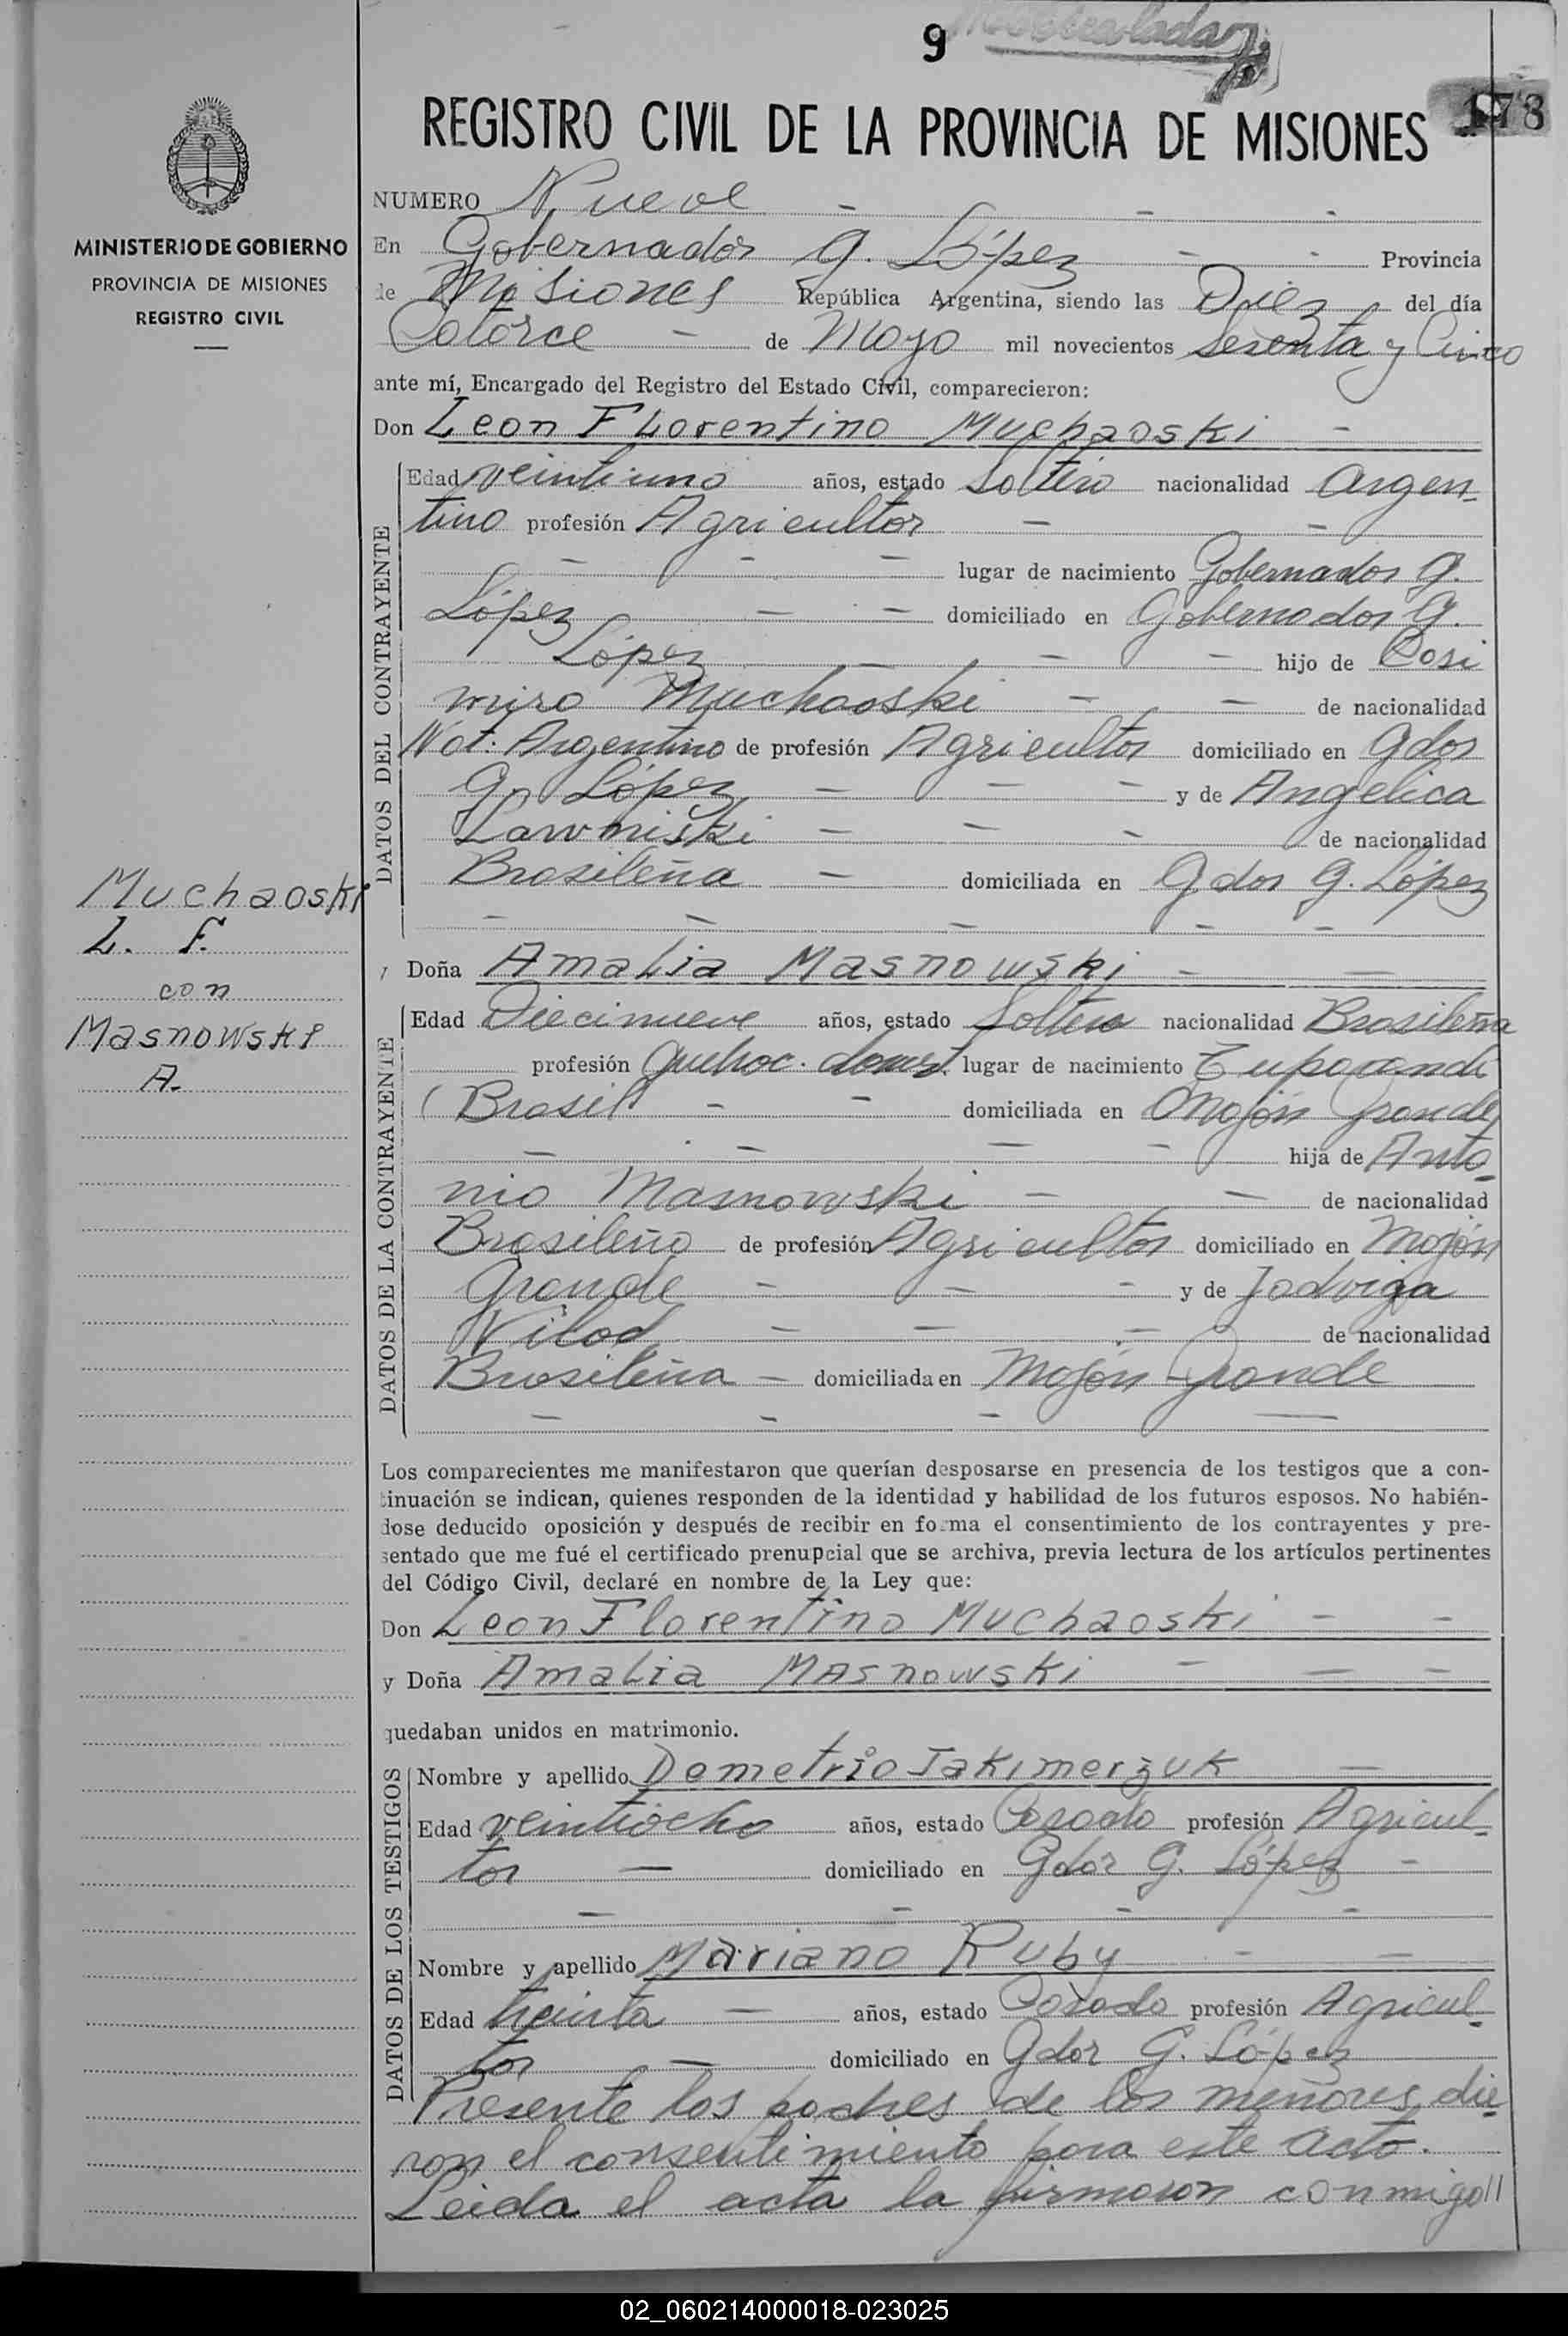 9
178
REGISTRO CIVIL DE LA PROVINCIA DE MISIONES
MINISTERIO DE GOBIERNO
PROVINCIA DE MISIONES
REGISTRO CIVIL
NUMERO Nueve - - -
En Gobernador G. López - - Provincia
de Misiones República Argentina, siendo las Diez del día
Catorce - de Mayo mil novecientos Sesenta y Cinco
ante mí, Encargado del Registro del Estado Civil, comparecieron:
Don Leon Florentino Muchaoski -
DATOS DEL CONTRAYENTE
Edad veintiuno años, estado Soltero nacionalidad Argen-
tino profesión Agricultor - -
- - - lugar de nacimiento Gobernador G.
López - - domiciliado en Gobernador G.
López - - - hijo de Casi
miro Muchaoski - - de nacionalidad
Nat. Argentino de profesión Agricultor domiciliado en Gdor
G. López - - - y de Angélica
- - - de nacionalidad
Brasileña - domiciliada en Gdor G. López
- - - - -
Muchaoski
L. F.
con
Masnowski
A.
Doña Amalia Masnowski - -
DATOS DE LA CONTRAYENTE
Edad Diecinueve años, estado Soltera nacionalidad Brasileña
profesión Quehac. domest. lugar de nacimiento
(Brasil - - domiciliada en Mojón Grande
- - - - hija de Anto-
nio Masnowski - - de nacionalidad
Brasileño de profesión Agricultor domiciliado en Mojón
Grande - - - y de Jadviga
- - - de nacionalidad
Brasileña - domiciliada en Mojón Grande
- - - -
Los comparecientes me manifestaron que querían desposarse en presencia de los testigos que a con-
tinuación se indican, quienes responden de la identidad y habilidad de los futuros esposos. No habién-
dose deducido oposición y después de recibir en forma el consentimiento de los contrayentes y pre-
sentado que me fué el certificado prenupcial que se archiva, previa lectura de los artículos pertinentes
del Código Civil, declaré en nombre de la Ley que:
Don Leon Florentino Muchaoski - -
y Doña Amalia Masnowski - - -
quedaban unidos en matrimonio.
DATOS DE LOS TESTIGOS
Nombre y apellido Demetrio Jakimerzuk -
Edad veintiocho años, estado Casado profesión Agricul-
tor - domiciliado en Gdor G. López -
- - - -
Nombre y apellido Mariano Ruby - -
Edad treinta - años, estado Casado profesión Agricul-
tor - domiciliado en Gdor G. López
Presente los padres de los menores die-
ron el consentimiento para este acto.
Leida el acta la firmaron conmigo//
02_060214000018-023025